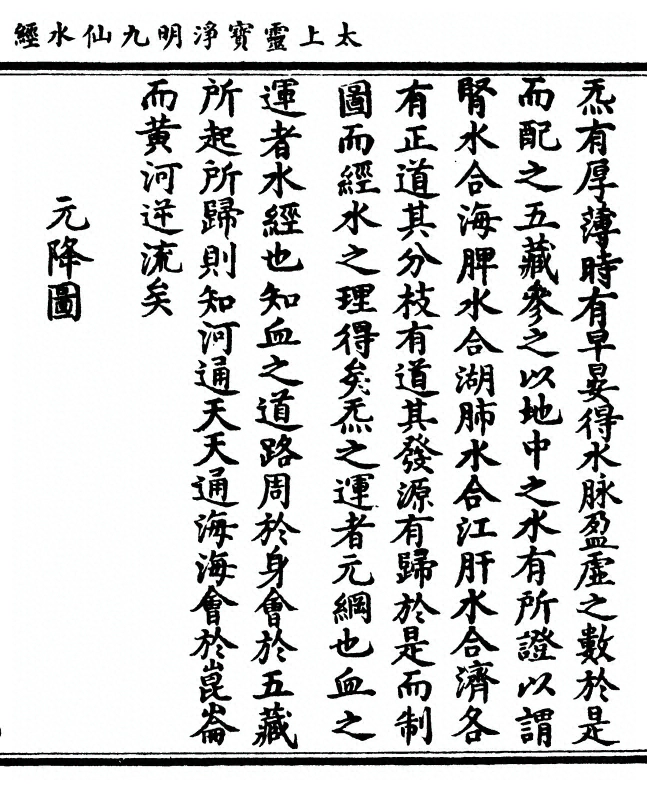 太上靈寶淨明九仙水經
炁有厚薄時有早晏得水脉盈虛之數於是
而配之五藏參之以地中之水有所證以謂
腎水合海脾水合湖肺水合江肝水合濟各
有正道其分枝有道其發源有歸於是而制
圖而經水之理得矣炁之運者元綱也血之
運者水經也知血之道路周於身會於五藏
所起所歸則知河通天天通海海會於崑崙
而黃河逆流矣
元降圖